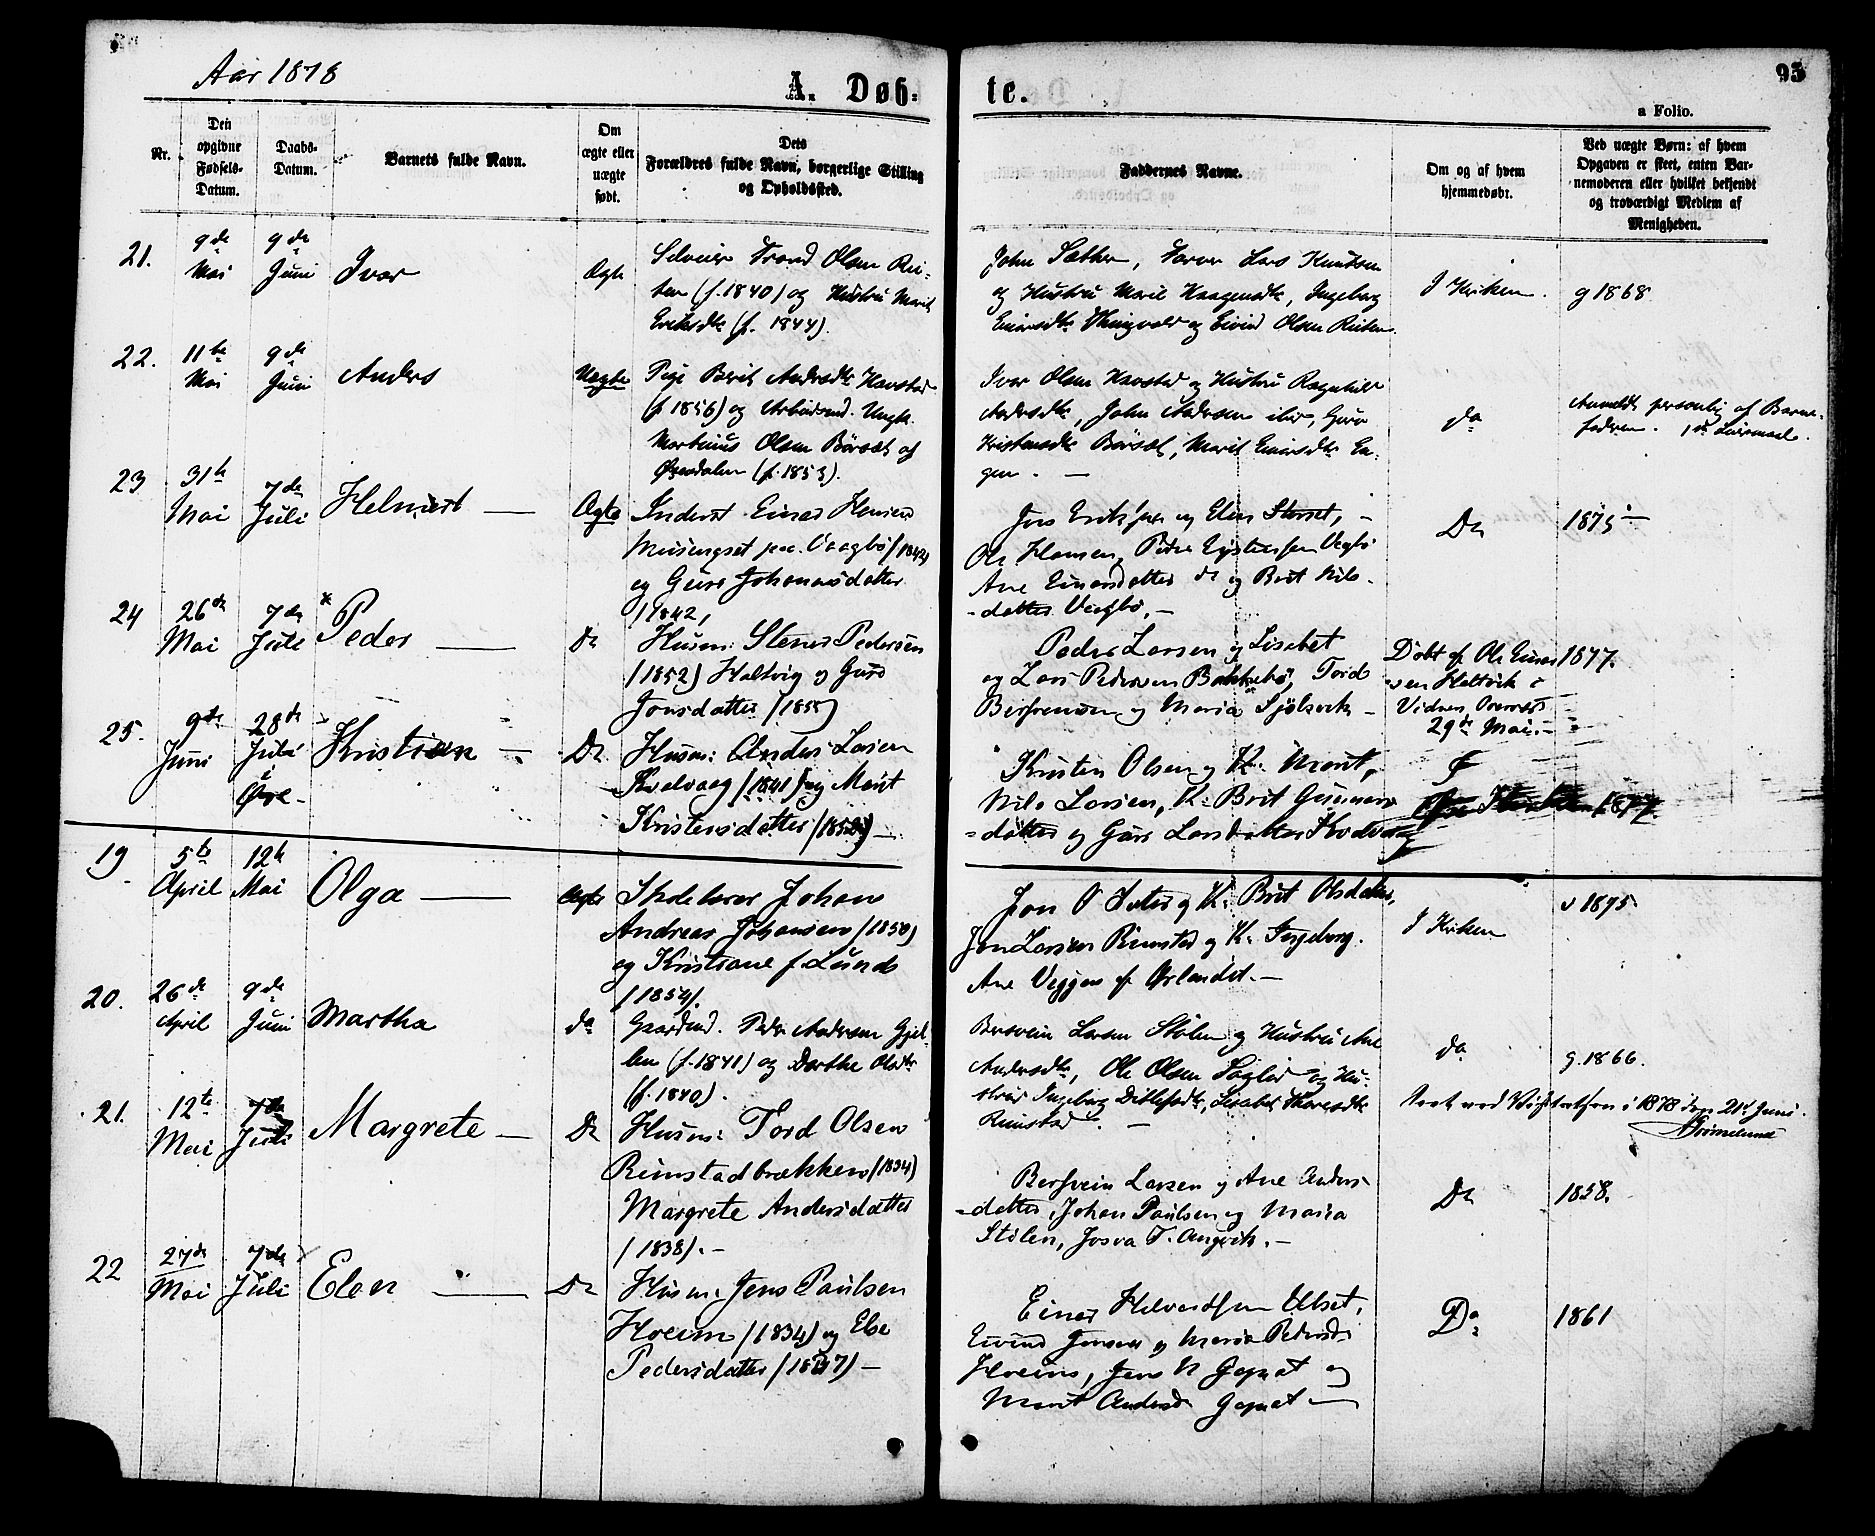 Aar 1878
A. Døb-
te.
95
a Folio.
Nr.
Den
opgivne
Fødsels-
Datum.
Daabs-
Datum.
Barnets fulde Navn.
Om
ægte eller
uægte
født.
Dets
Forældres fulde Navn, borgerlige Stilling
og Opholdssted.
Faddernes Navne.
Om og af hvem
hjemmedøbt.
Ved uægte Børn: af hvem
Opgaven er skeet, enten Bar-
nemoderen eller hvilket bekjendt
og troværdigt Medlem af
Menigheden.
21.
9de
Mai
9de
Juni
Ivar
Ægte
Selveier Trond Olsen Rei-
ten (f. 1840) og Hustru Marit
Eriksdtr (f. 1844).
John Sæther, Farver Lars Knutsen
og Hustru Marit Haagensdtr, Ingeborg
Einarsdtr og Eivind Olsen Reiten
I Kirken.
g 1868
22.
11te
Mai
9de
Juni
Anders
Uægte
Pige Berit Andersdtr Havstad
(f 1856) og Arbeidsmd. Ungk.
Martinus Olsen Börset af
Øxendalen (f. 1853).
Iver Olsen Havstad og Hustru Ragnhild
Andersdtr, John Andersen ibid, Guro
Kristensdtr Börset, Marit Einarsdtr En-
gen. —
do
Anmeldt personlig af Barne-
faderen. 1ste Leiermaal.
23
31te
Mai
7de
Juli
Helmert —
Ægte
Inderst Einar Hansen
Meisingset paa Vaagbø (1842)
og Guro Johannesdatter
(1842)
Jens Eriksen og Elen Storset, —
Ole Hansen, Peder Vegbø
Ane Einarsdatter do og Brit Nils-
datter Vegbø. —
Do
1875 —
24
26de
Mai
7de
Juli
* Peder —
Do
Husm: Stener Pedersen
(1852) Holtvig og Guro
Jonsdatter (1855)
Peder Larsen og Lisabet
og Lars Pedersen Bakkebø, Tord
og Maria Sjølsvik —
Døbt af Ole Einar-
sen Holtvik i
Vidners Overvær
29de Mai. —
1877.
25.
9de
Juni
28de
Juli
i
Øre —
Kristian —
Do
Husm: Anders Larsen
Kvalvaag (1841) og Marit
Kristensdatter (1852) —
Kristen Olsen og K. Marit,
Nils Larsen, K. Brit Gunners-
datter og Guro Larsdatter Kvalvaag
1877.
19
5te
April
12te
Mai
Olga —
Ægte
Skolelærer Johan
Andreas Johansen (1850)
og Kristiane f. Lund
(1854).
Jon O og K. Brit Olsdatter,
Jon Larsen Rimstad og K. Ingeborg.
Ane Veggen af Ørlandet. —
I Kirken
v 1875
20.
26de
April
9de
Juni
Martha
do
Gaardmd. Peder Andersen Gjel-
len (f. 1841) og Dorthe Olsdtr
(f. 1840).
Bersvein Larsen Stölen og Hustru Ane
Andersdtr, Ole Olsen og Hu-
stru Ingeborg Ditlefsdtr, Lisabet
Rimstad. —
do
g. 1866.
i 1878 den 21de Juni.
21.
12te
Mai
7de
Juli
Margrete —
Do
Husm: Tord Olsen
Rimstadbrækken (1834)
Margrete Andersdatter
(1838). —
Bersvein Larsen og Ane Anders-
datter, Johan Paulsen og Maria
Stölen, Josva T. Angvik. —
Do
1858.
22
27de
Mai
7de
Juli
Elen —
Do
Husm: Jens Paulsen
Hoem (1834) og Else
Pedersdatter (1837) —
Einar Ulset,
Eivind Jensen og Maria Pedersdr
Hoem, Jens N Gagnat og
Marit Andersdr Gagnat —
Do
1861